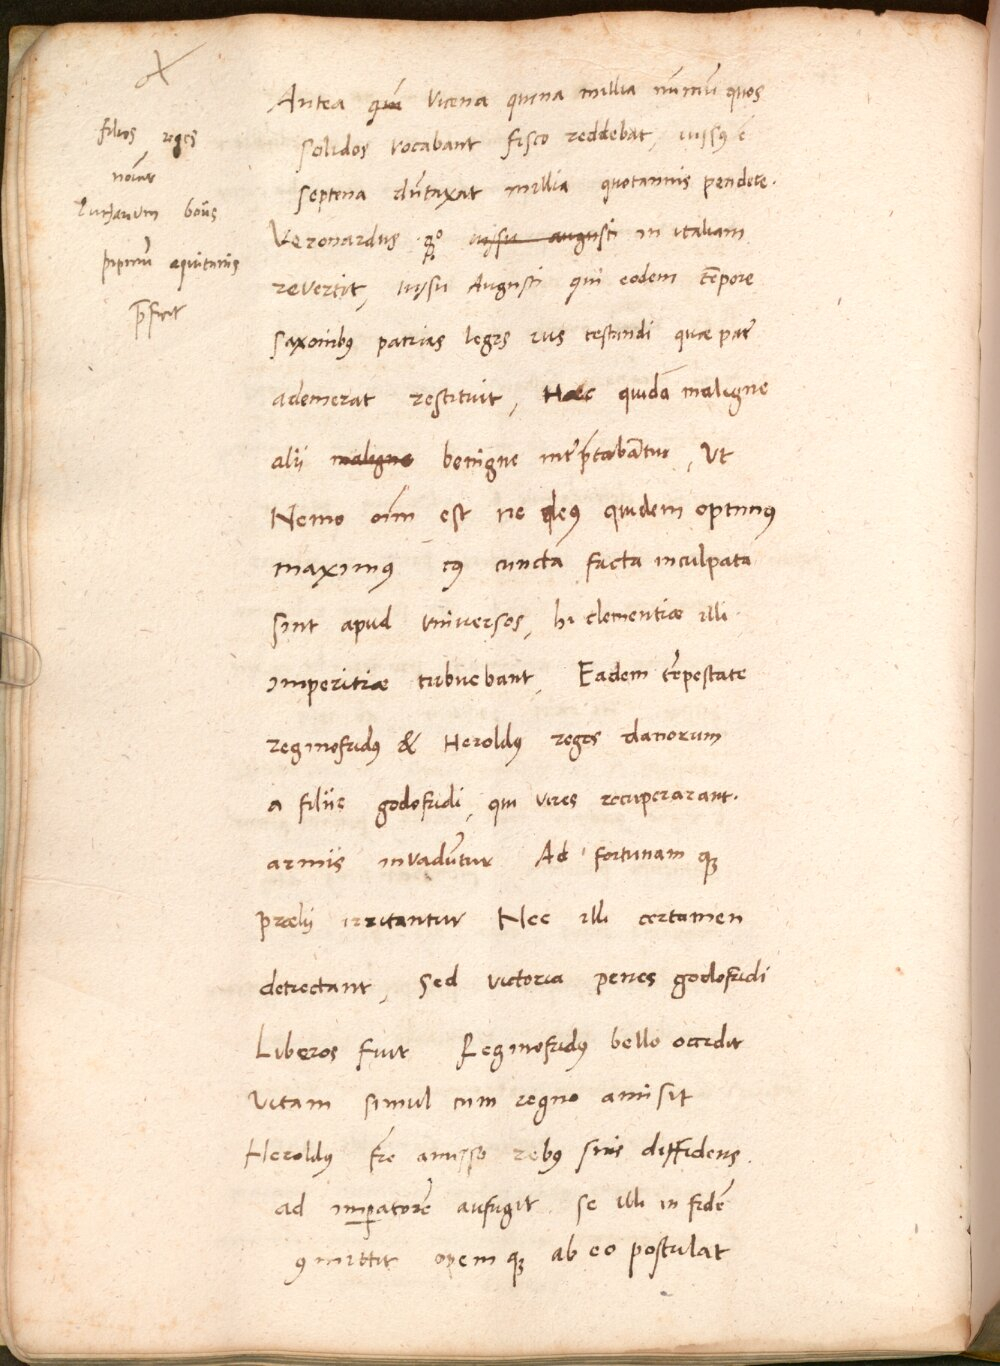 filios reges
novat
Lutharium boiis
pipinū aquitanis
p̄ficit
Antea quā vicena quina millia nūmū quos
solidos vocabant fisco reddebat, iussꝰ ē
septena dūtaxat millia quotannis pendere.
Veronardus iussu augusti in italiam
revertit, iussu Augusti qui eodem tēpore
saxonibꝰ patrias leges ius testandi quæ pat̄
ademerat restituit, Hæc quidā maligne
alii maligne benigne int̄p̄tabāntur, Ut
Nemo oīm est ne deꝰ quidem optimꝰ
maximꝰ cꝰ cuncta facta inculpata
sint apud universos, hi clementiæ illi
imperitiæ tribuebant, Eadem tēpestate
reginofridꝰ & Heroldꝰ reges danorum
a filiis godofridi, qui vires recuperarant.
armis invadūtur Ad fortunam qꝫ
prælii irritantur Nec illi certamen
detrectant, sed victoria penes godofridi
Liberos fuit Reginofridꝰ bello occidit
vitam simul cum regno amisit
Heroldꝰ fr̄e amisso rebꝰ suis diffidens
ad imꝑatorē aufugit se illi in fidē
ꝯmittit opem qꝫ ab eo postulat